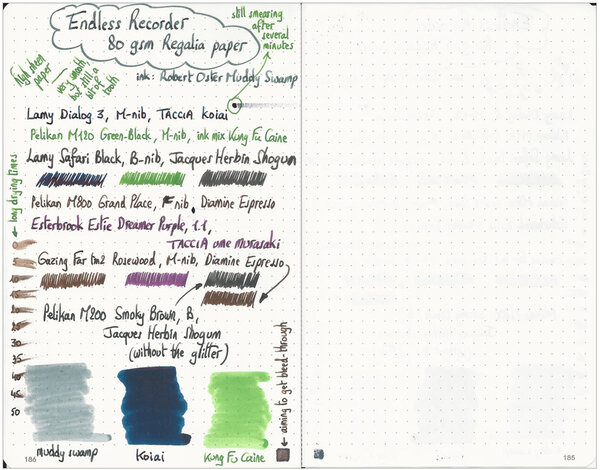 Endless Recorder
80 gsm Regalia paper
ink: Robert Oster Muddy Swamp
still smearing
after
several
minutes
High sheen
paper
very smooth,
but still a
bit of
tooth
Lamy Dialog 3, M-nib, TACCIA Koiai
Pelikan M120 Green-Black, M-nib, ink mix Kung Fu Caine
Lamy Safari Black, B-nib, Jacques Herbin Shogun
Pelikan M800 Grand Place, F nib, Diamine Espresso
Esterbrook Estie Dreamer Purple, 1.1,
TACCIA ume murasaki
Gazing Far tm2 Rosewood, M-nib, Diamine Espresso
Pelikan M200 Smoky Brown, B,
Jacques Herbin Shogun
(without the glitter)
← long drying times
0
5
10
15
20
25
30
35
40
45
50
muddy swamp
Koiai
Kung Fu Caine
← aiming to get bleed-through
186
185